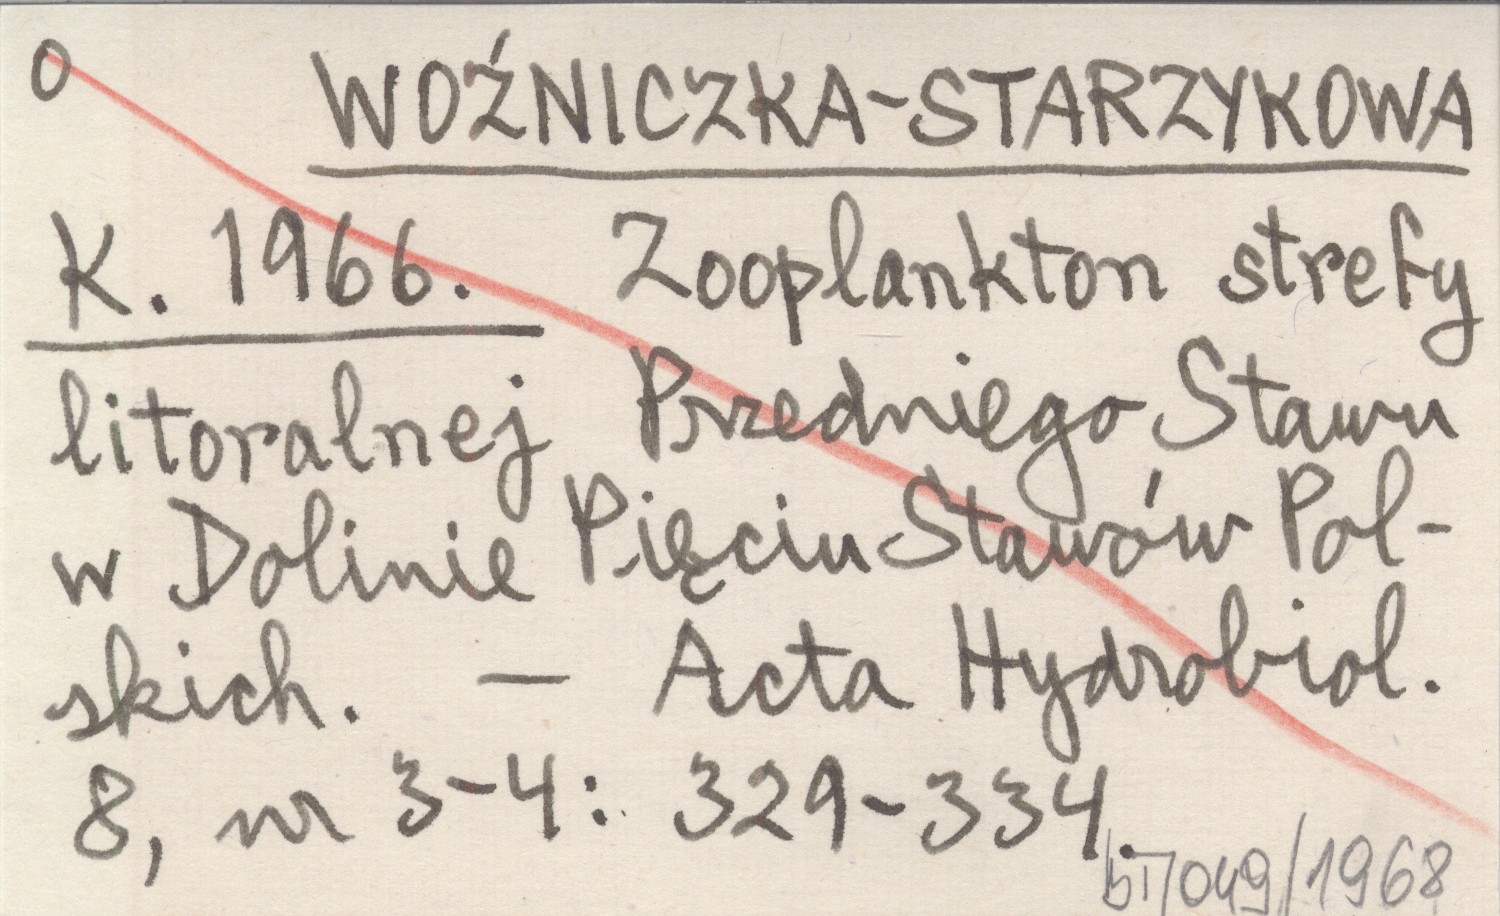 O WOŹNICZKA-STARZYKOWA
K. 1966. Zooplankton strefy
litoralnej Przedniego Stawu
w Dolinie Pięciu Stawów Pol-
skich. — Acta Hydrobiol.
8, nr 3-4: 329-334.
/049/1968